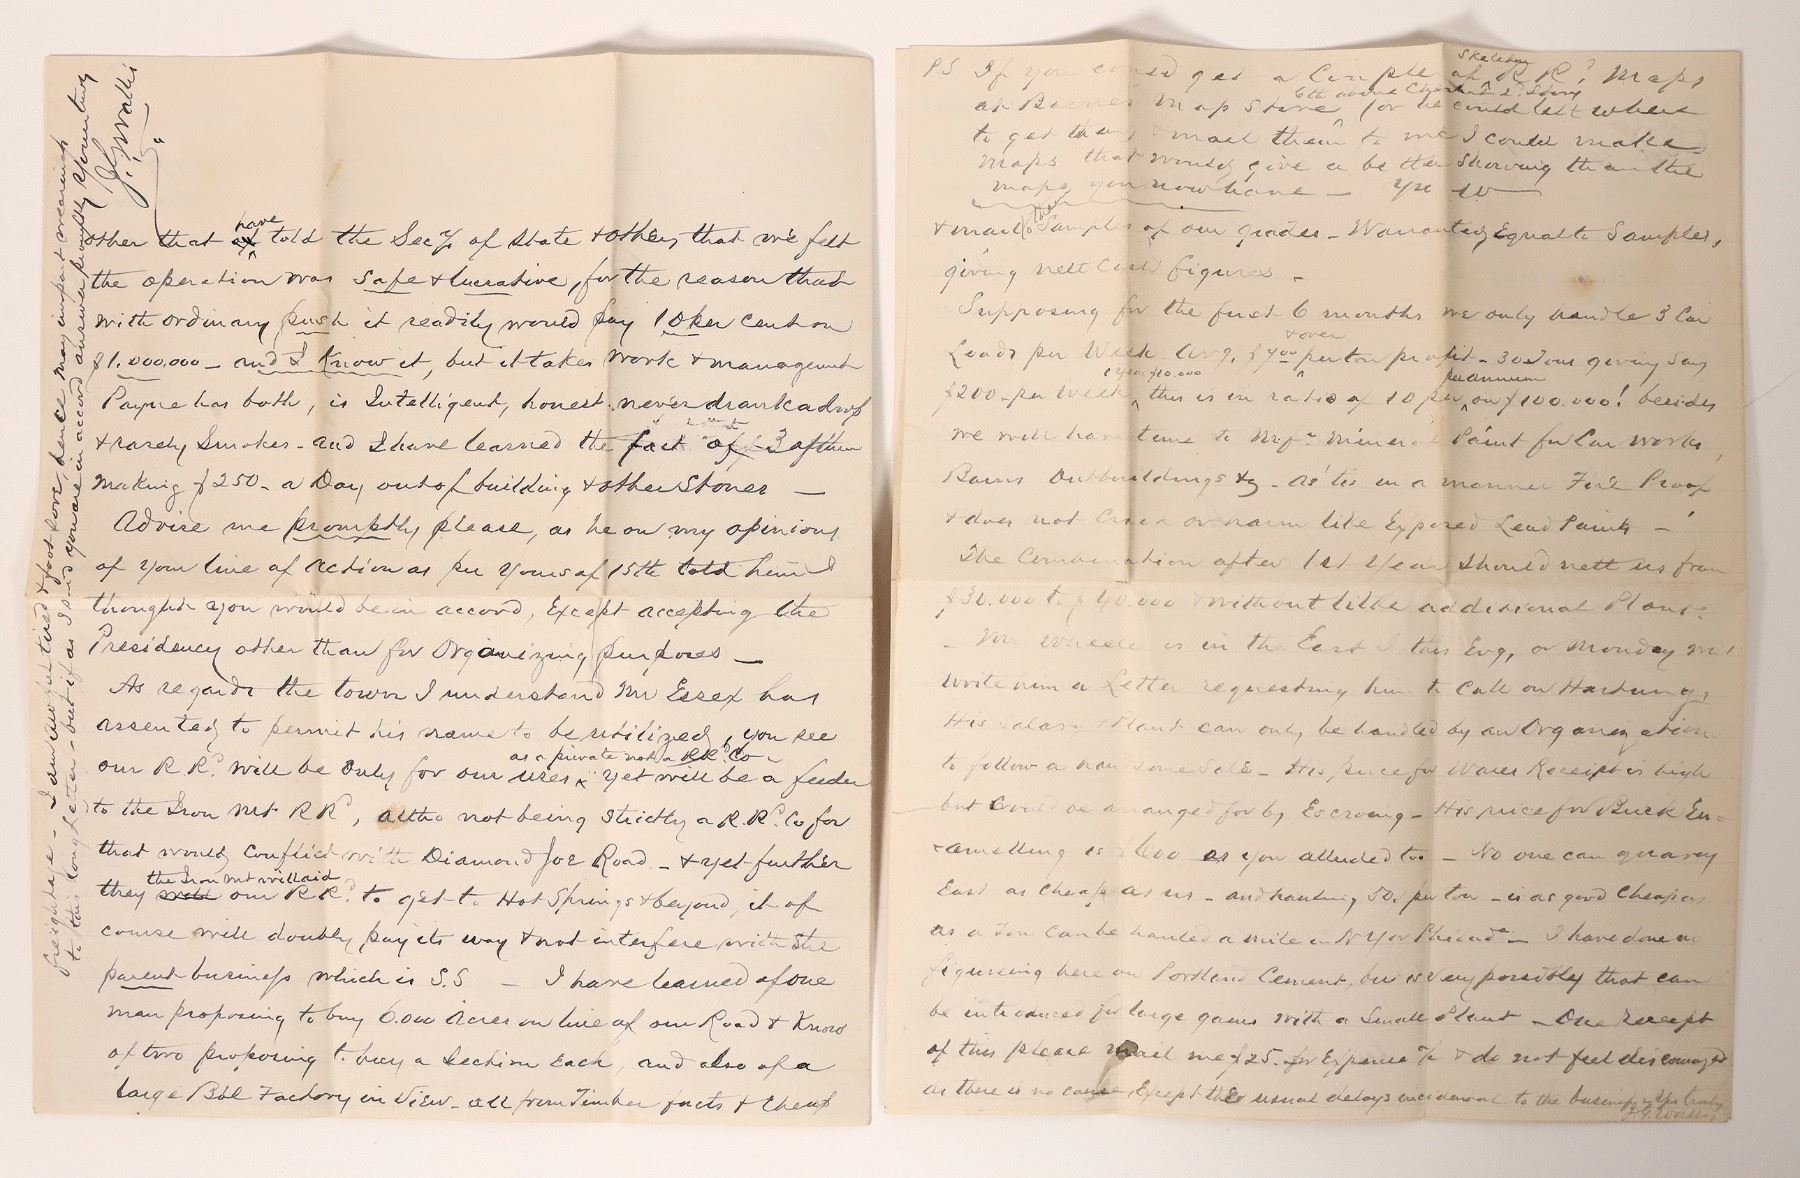 other that have told the Secy. of State & others that we felt
the operation was safe & lucrative, for the reason that
with ordinary push it readily would pay 10 per cent on
$1.000.000 - and I know it, but it takes work & management
Payne has both, is Intelligent, honest. never drank a drop
& rarely smokes - and I have learned the fact of 3 of them
making $250 - a Day out of building & other Stones -
Advise me promptly please, as he on my opinions
of your line of action as per yours of 15th told him I
thought you would be in accord, Except accepting the
Presidency other than for Organizing purposes -
As regards the town I understand Mr Essex has
assented to permit his name to be utilized, you see
as a private not a RRd. Co -
our R Rd. will be only for our uses yet will be a feeder
to the Iron Mt R Rd, altho not being strictly a R Rd. Co for
that would conflict with Diamond Joe Road - & yet further
the Iron Mt will aid
they our R Rd. to get to Hot Springs & beyond, it of
course will doubly pay its way & not interfere with the
parent business which is S.S - I have learned of one
man proposing to buy 6.000 Acres on line of our Road & Know
of two proposing to buy a Section Each, and also of a
large Bbl Factory in View - all from Timber facts & cheap
freightage - I am awful tired & foot sore, hence may
to this long letter - but if as I said you are in accord answer promptly Yours truly
J G Wallis
Skeleton
PS If you could get a Complete of R Rd. Maps
6th above Chestnut 2d. Story
at Barnes Map Store (or he could tell where
to get them, & mail them to me I could make
maps that would give a better showing than the
maps you now have - Yrs W
& mail them Samples of our grades - Warranted Equal to Samples,
giving nett cash figures -
Supposing for the first 6 months we only handle 3 Car
& over
Loads per Week Avg. $7 00 per ton profit - 30 Tons giving say
1 year $10.000 per annum
$200 - per week, this is in ratio of 10 per on $100.000! besides
we will have time to Mfr. Mineral Paint for Car works,
Barns Outbuildings &c - as tis in a manner Fire Proof
& does not Crack or harm like Exposed Lead Paints -
The Combination after 1st Year should nett us from
$30.000 to $40.000 & without little additional Plant.
- Mr Wheeler is in the East I this Evg, or Monday will
write him a Letter requesting him to call on Hartungs
His Salary & Plant can only be handled by an Organization
to follow a handsome Sale - His price for Water Receipt is high
but could be arranged for by Escrowing - His price for Buck En
ameling is $600 as you alluded to - No one can quarry
East as cheap as us - and hauling 50¢ per ton - is as good cheap as
as a Ton can be hauled a mile in N Y or Philada - I have done no
figureing here on Portland Cement, but is very possibly that can
be introduced for large gains with a Small Plant - One receipt
of this please mail me $25. for Expense a/c & do not feel discouraged
as there is no cause Except the usual delays incidental to the business Yrs truly
J. G. Wallis